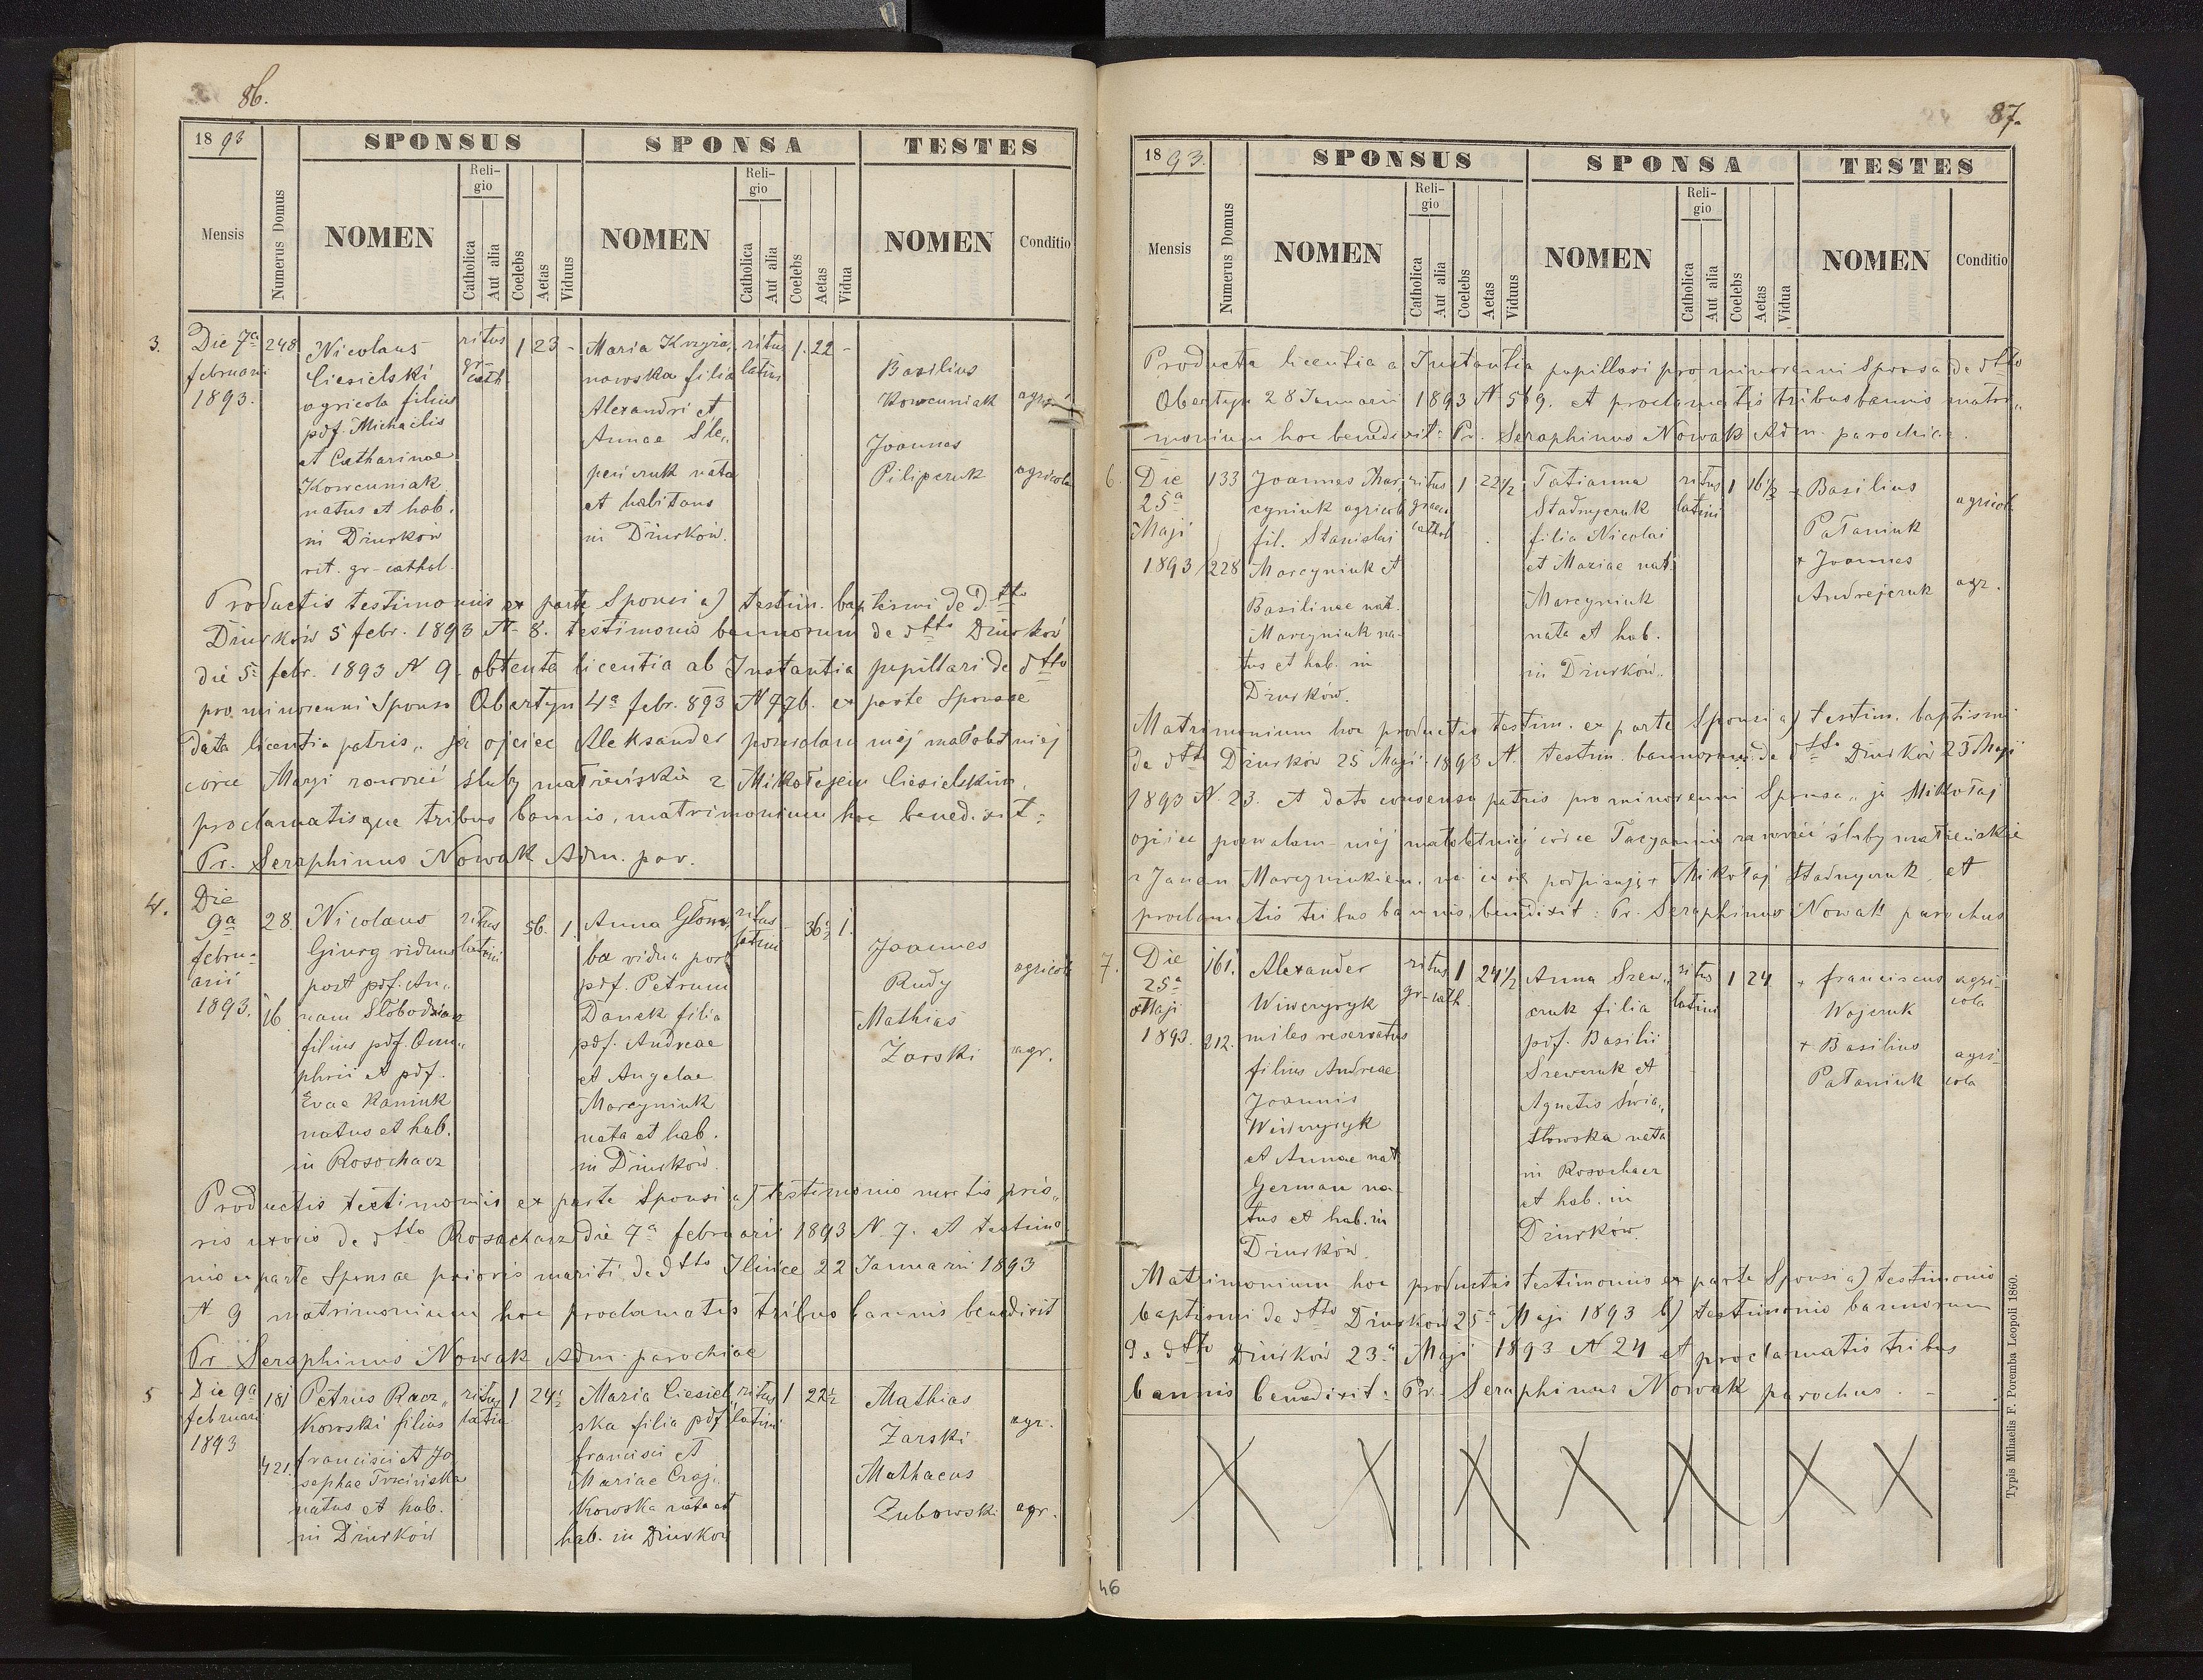 86.
1893
SPONSUS
SPONSA
TESTES
Mensis
Numerus Domus
NOMEN
Religio
Catholica
Aut alia
Coelebs
Aetas
Viduus
NOMEN
Religio
Catholica
Aut alia
Coelebs
Aetas
Vidua
NOMEN
Conditio
3.
Die 7a
februarii
1893.
248
Nicolaus
Ciesielski
agricola filius
pdf. Michaelis
et Catharinae
Kowcuniak
natus et hab.
in Dżurków
rit. gr-cathol.
ritus
gr-
cath.
1
23
-
Maria Krzyża„
nowska filia
Alexandri et
Annae Ste„
peńczuk nata
et habitans
in Dżurków.
ritus
latini
1.
22
-
Basilius
Kowcuniak
agri
Joannes
Pilipczuk
agricola
Productis testimoniis ex parte Sponsi a) testim. baptismi de dtto
Dżurków 5 febr. 1893 N. 8. testimonio bannorum de dtto Dżurków
die 5 febr. 1893 N 9. obtenta licentia ab Instantia pupillari de dtto
pro minorenni Sponso Obertyn 4a febr. 893 N 776. ex parte Sponsae
data licentia patris „ ja ojciec Aleksander pozwalam mej małoletniej
córce Maryi zawrzeć śluby małżeńskie z Mikołajem Ciesielskim,
proclamatisque tribus bannis, matrimonium hoc benedixit:
Pr. Seraphinus Nowak Adm. par.
4.
Die
9a
febru-
arii
1893.
28.
16
Nicolaus
Giurg viduus
post pdf. An„
nam Słobodzian
filius pdf. Onu„
phrii et pdf.
Evae Kaniuk
natus et hab.
in Rosochacz
ritus
latini
56.
1.
Anna Głom
ba vidua post
pdf. Petrum
Danek filia
pdf. Andreae
et Angelae
Marcyniuk
nata et hab.
in Dżurków.
ritus
latini
-
36½
1.
Joannes
Rudy
agricola
Mathias
Żarski
agr.
Productis testimoniis ex parte Sponsi a) testimonio mortis prio„
ris uxoris de dtto Rosochacz die 7a februarii 1893 N 7. et testimo
nio ex parte Sponsae prioris mariti de dtto Ilińce 22 Januarii 1893
N 9 matrimonium hoc proclamatis tribus bannis benedixit
Pr. Seraphinus Nowak Adm. parochiae
5
Die 9a
februarii
1893
181
421.
Petrus Racz„
kowski filius
francisci et Jo
sephae Trzcińska
natus et hab.
in Dżurków
ritus
latin
1
24½
Maria Ciesiel„
ska filia pdf
francisci et
Mariae Czaj„
kowska nata et
hab. in Dżurków
ritus
latini
1
22½
Mathias
Żarski
agr.
Mathaeus
Zubowski
agr.
87.
1893.
SPONSUS
SPONSA
TESTES
Mensis
Numerus Domus
NOMEN
Religio
Catholica
Aut alia
Coelebs
Aetas
Viduus
NOMEN
Religio
Catholica
Aut alia
Coelebs
Aetas
Vidua
NOMEN
Conditio
Producta licentia a Instantia pupillari pro minorenni Sponsa de dtto
Obertyn 28 Januarii 1893 N 569. et proclamatis tribus bannis matri„
monium hoc benedixit: Pr. Seraphinus Nowak Adm. parochiae.
6.
Die
25a
Maji
1893
133
228
Joannes Mar„
cyniuk agricol
fil. Stanislai
Marcyniuk et
Basilinae nat.
Marcyniuk na-
tus et hab. in
Dżurków.
ritus
graeci
cathol
1
22½
Tatianna
Stadnyczuk
filia Nicolai
et Mariae nat.
Marcyniuk
nata et hab.
in Dżurków.
ritus
latini
1
16½
+ Basilius
Pałaniuk
agricol
+ Joannes
Andrejczuk
agr.
Matrimonium hoc productis testim. ex parte Sponsi a) testim. baptismi
de dtto Dżurków 25 Maji 1893 N. testim. bannorum de dtto Dżurków 23 Maji
1893 N. 23. et dato consensu patris pro minorenni Sponsa „ ja Mikołaj
ojciec pozwalam mej małoletniej córce Tacyannie zawrzeć śluby małżeńskie
z Janem Marcyniukiem, na co się podpisuję + Mikołaj Stadnyczuk, et
proclamatis tribus bannis, bendixit: Pr. Seraphinus Nowak parochus
7.
Die
25a
Maji
1893.
161.
212.
Alexander
Wiwczyryk
miles reservatus
filius Andreae
Joannis
Wiwczyryk
et Annae nat
German na-
tus et hab. in
Dżurków.
ritus
gr-cath.
1
24½
Anna Szew„
czuk filia
pdf. Basilii
Szewczuk et
Agnetis Świa„
tłowska nata
in Rosochacz
et hab. in
Dżurków.
ritus
latini
1
24
+ franciscus
Wojczuk
agri-
cola
+ Basilius
Pałaniuk
agri
cola
Matrimonium hoc productis testimoniis ex parte Sponsi a) testimonio
baptismi de dtto Dżurków 25a Maji 1893 b) testimonio bannorum
de dtto Dżurków 23a Maji 1893 N 24 et proclamatis tribus
bannis benedixit: Pr. Seraphinus Nowak parochus.
Typis Mihaelis F. Poremba Leopoli 1860.
46